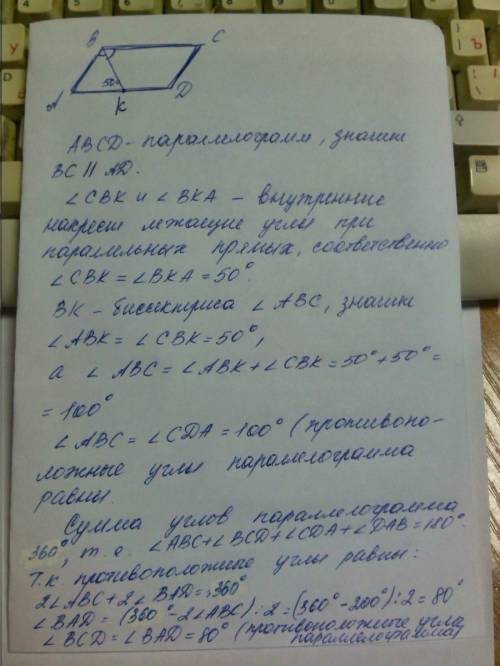 B C
50°
A K D
ABCD - параллелограмм, значит
BC || AD.
∠CBK и ∠BKA - внутренние
накрест лежащие углы при
параллельных прямых, соответственно
∠CBK = ∠BKA = 50°.
BK - биссектриса ∠ABC, значит
∠ABK = ∠CBK = 50°,
а ∠ABC = ∠ABK + ∠CBK = 50° + 50° =
= 100°
∠ABC = ∠CDA = 100° (противопо-
ложные углы параллелограмма
равны.
Сумма углов параллелограмма
360°, т.е. ∠ABC + ∠BCD + ∠CDA + ∠DAB = 180°.
Т.к противоположные углы равны:
2∠ABC + 2∠BAD = 360°
∠BAD = (360° - 2∠ABC) : 2 = (360° - 200°) : 2 = 80°
∠BCD = ∠BAD = 80° (противоположные углы
параллелограмма)